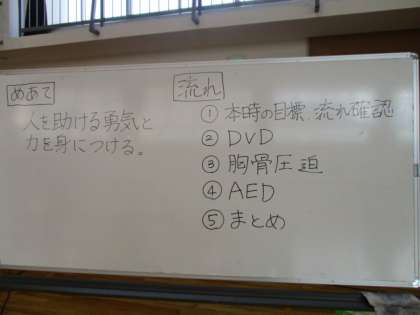 めあて
人を助ける勇気と
力を身につける。
流れ
① 本時の目標、流れ確認
② DVD
③ 胸骨圧迫
④ AED
⑤ まとめ